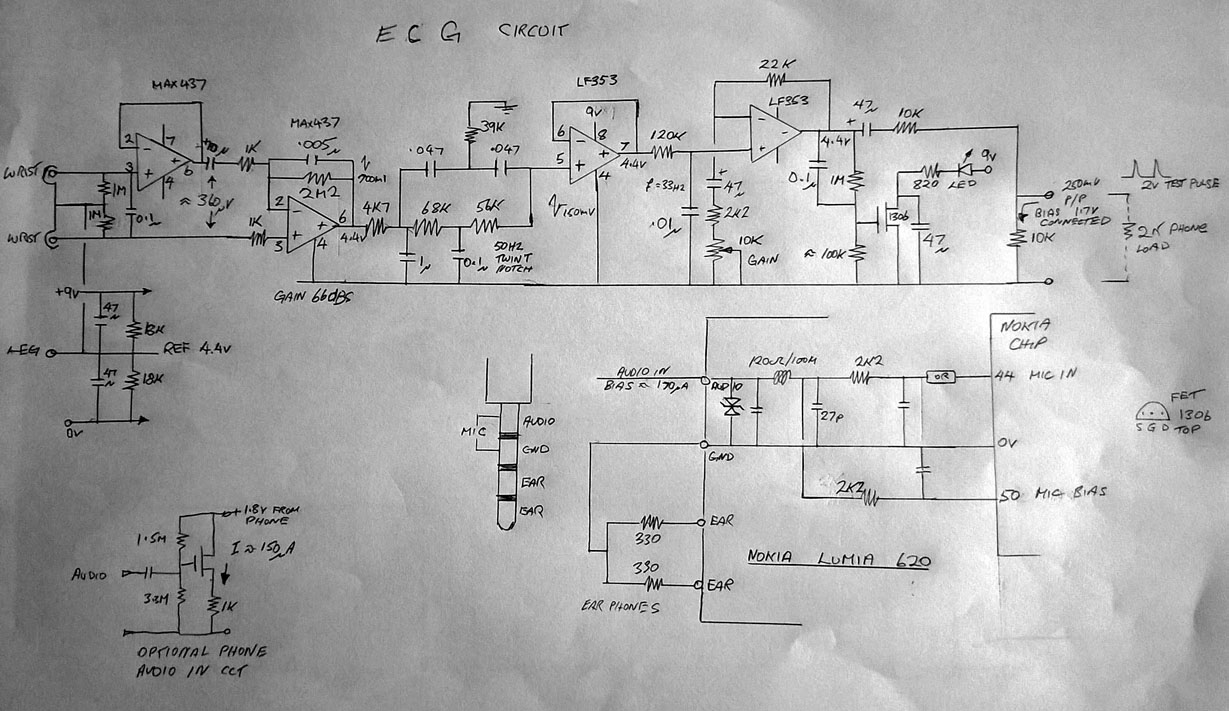 ECG CIRCUIT
MAX437
MAX437
LF353
LF353
22K
WRIST
WRIST
2
3
7
4
6
1M
1M
0.1
1K
1K
.005µ
2M2
2
3
6
4
4.4V
4K7
39K
.047
.047
68K
56K
1µ
0.1µ
50HZ
TWIN T
NOTCH
GAIN 66dBs
9V
6
5
8
7
4
4.4V
150mV
120K
f=33HZ
.01µ
47µ
2K2
10K
GAIN
4.4V
0.1µ
1M
≈ 100K
47µ
10K
1306
820
LED
9V
47µ
250mV
P/P
BIAS 1.7V
CONNECTED
10K
2V TEST PULSE
PHONE
LOAD
+9V
47µ
47µ
18K
LEG
REF 4.4V
0V
AUDIO IN
BIAS ≈ 170µA
AUDIO
2K2
0R
27P
NOKIA
CHIP
44 MIC IN
0V
50 MIC BIAS
2K2
GND
MIC
AUDIO
GND
EAR
EAR
330
330
EAR
EAR
EAR PHONES
NOKIA LUMIA 620
FET
1306
TOP
S G D
+1.8V FROM
PHONE
1.5M
I ≈ 150µA
AUDIO
3.3M
1K
OPTIONAL PHONE
AUDIO IN CCT